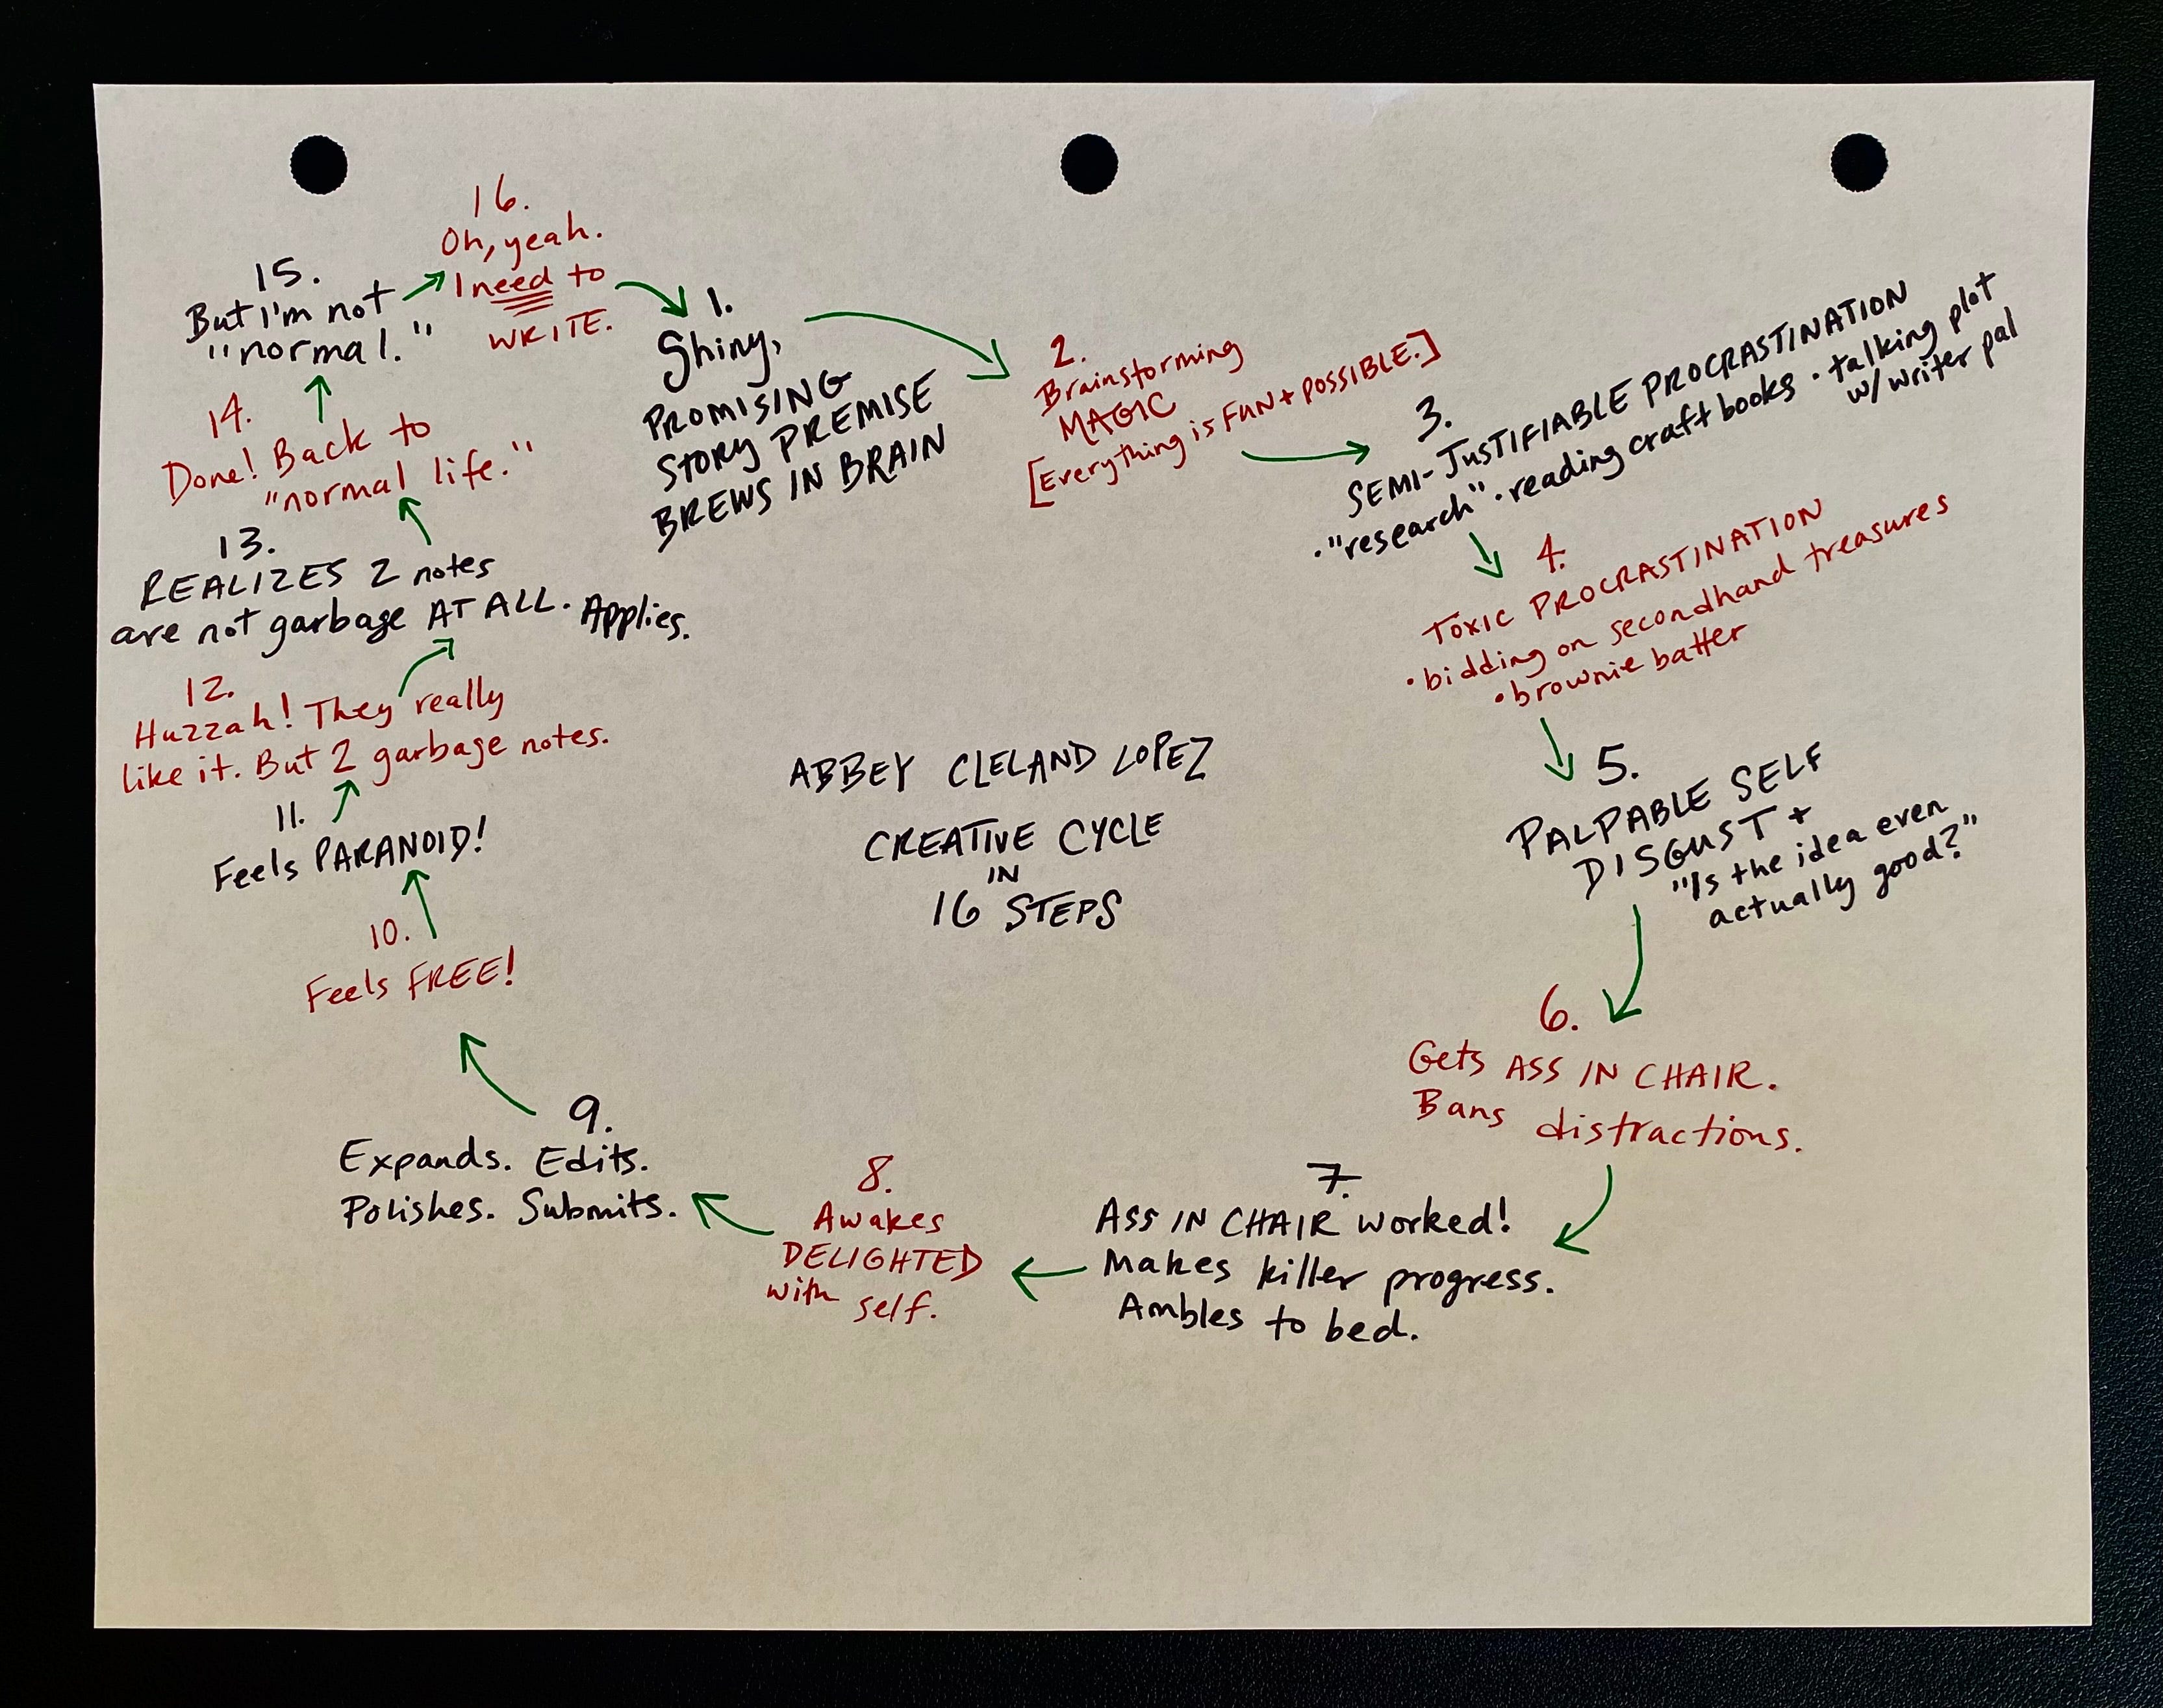 ABBEY CLELAND LOPEZ
CREATIVE CYCLE
IN
16 STEPS
1.
Shiny,
PROMISING
STORY PREMISE
BREWS IN BRAIN
2.
Brainstorming
MAGIC
[Everything is FUN + POSSIBLE.]
3.
SEMI-JUSTIFIABLE PROCRASTINATION
• "research" • reading craft books • talking plot
w/ writer pal
4.
TOXIC PROCRASTINATION
• bidding on secondhand treasures
• brownie batter
5.
PALPABLE SELF
DISGUST +
"Is the idea even
actually good?"
6.
Gets ASS IN CHAIR.
Bans distractions.
7.
ASS IN CHAIR worked!
Makes killer progress.
Ambles to bed.
8.
Awakes
DELIGHTED
with self.
9.
Expands. Edits.
Polishes. Submits.
10.
Feels FREE!
11.
Feels PARANOID!
12.
Huzzah! They really
like it. But 2 garbage notes.
13.
REALIZES 2 notes
are not garbage AT ALL. Applies.
14.
Done! Back to
"normal life."
15.
But I'm not
"normal."
16.
Oh, yeah.
I need to
WRITE.